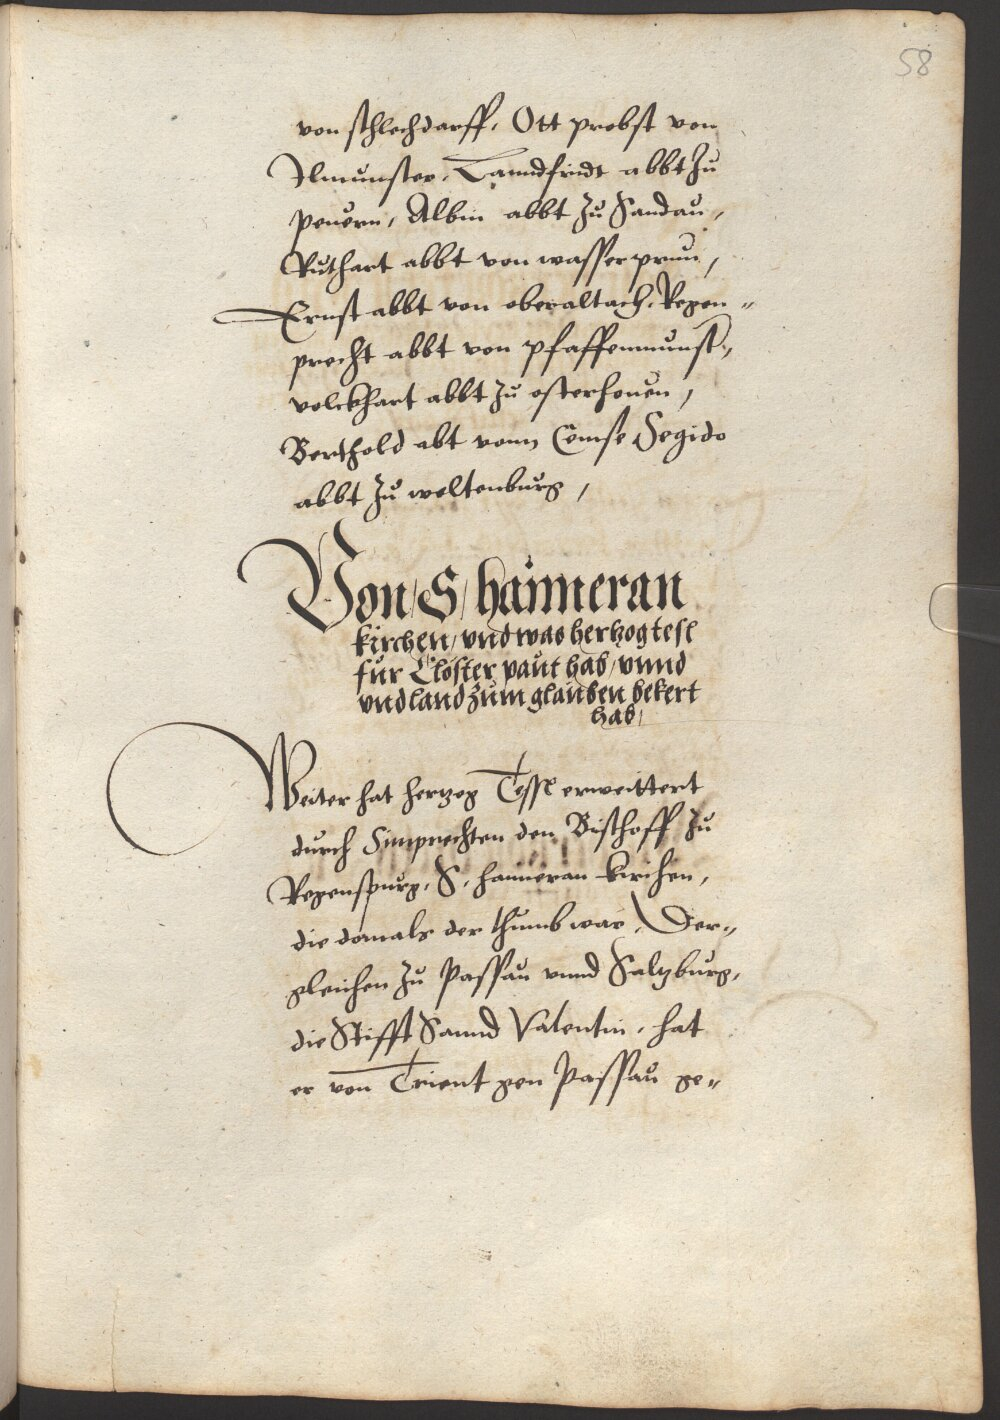 58
von schlechdarff, Ott probst von
Ilmunster, Lanndfridt abbt zu
peuern, Albin abbt zu Sandau,
Ruthart abbt von wasserprun,
Ernst abbt von oberaltach, Regen„
precht abbt von pfaffenmunst„
volckhart abbt zu osterhouen,
Berthold abt vonn Cemse Segido
abbt zu weltenburg,
Von /S/ haimeran
kirchen, vnd was hertzog tesl
fur Closter paut hab, vnnd
vnd land zum glauben bekert
hab,
Weiter hat hertzog Tessl erweittert
durch Simprechten den Bischoff zu
Regenspurg, S, haimeran kirchen,
die domals der thumb war, Der„
gleichen zu Passau vnnd Saltzburg,
die Stifft Sannd Valentin, hat
er von Trient gen Passau ge„